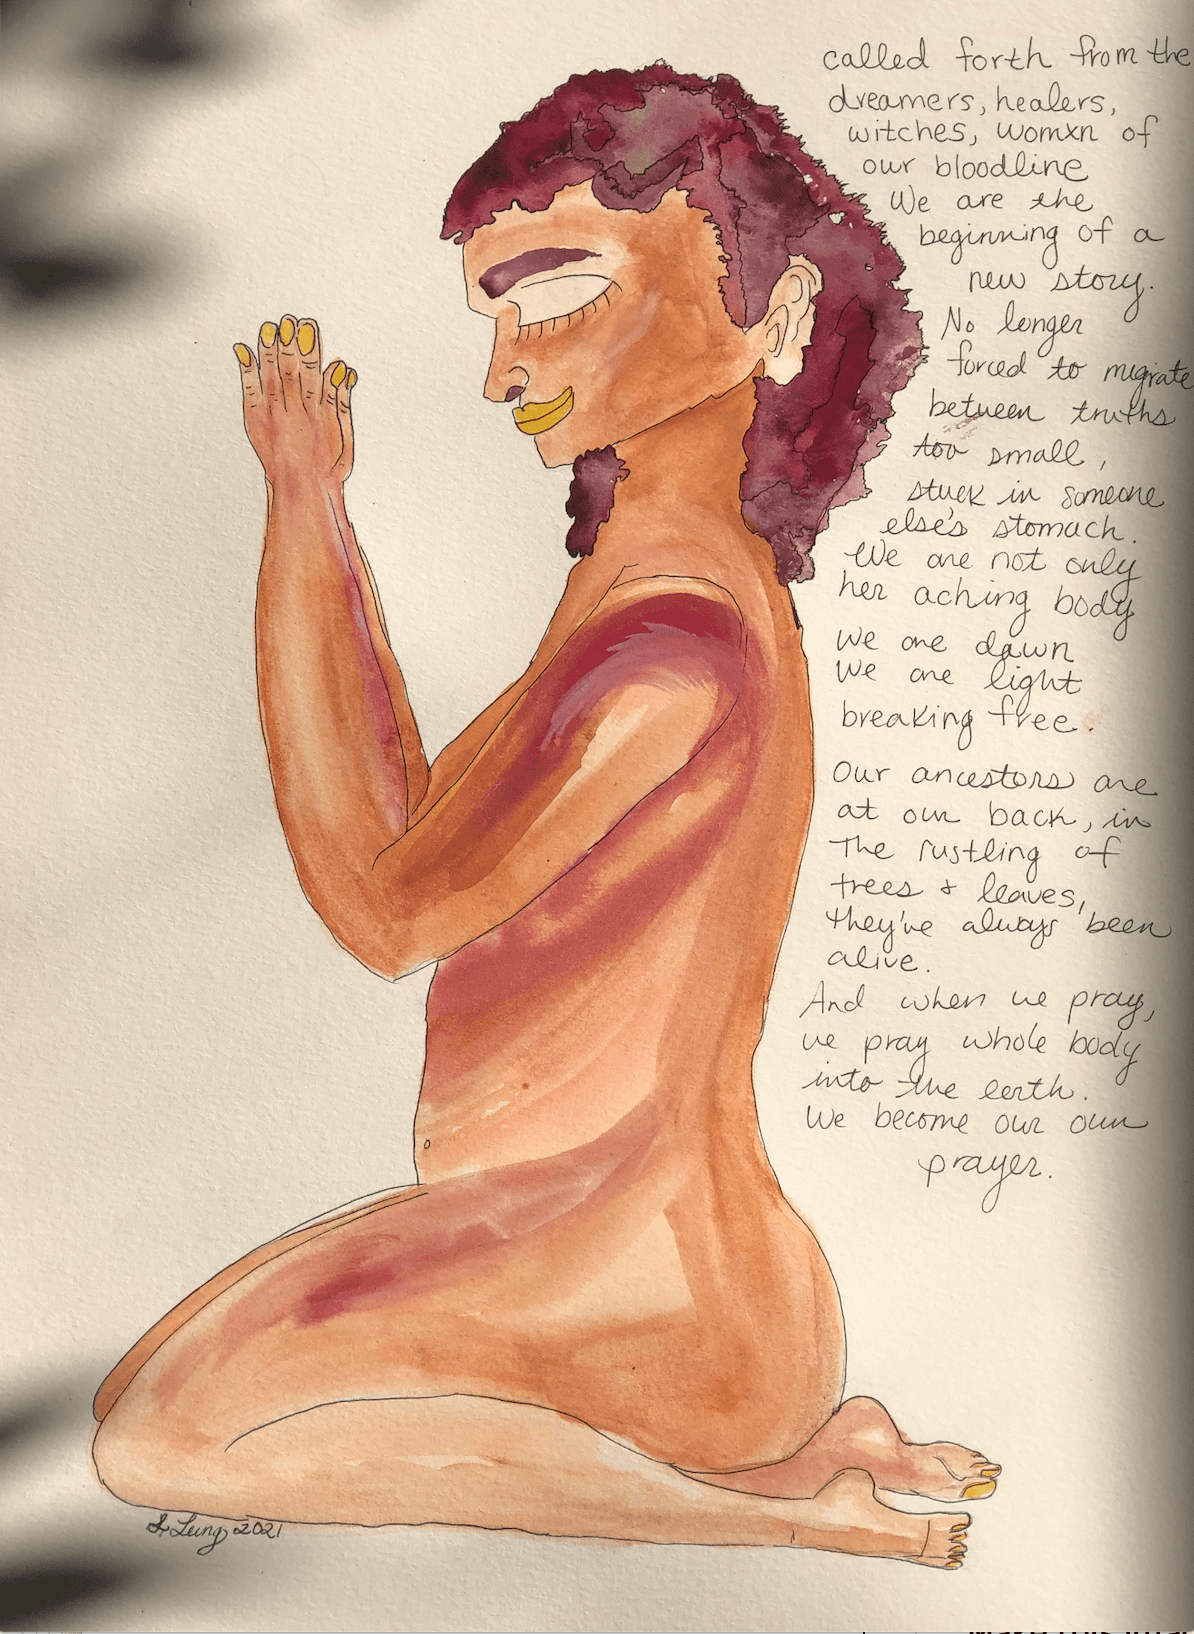 called forth from the
dreamers, healers,
witches, womxn of
our bloodline
We are the
beginning of a
new story.
No longer
forced to migrate
between truths
too small,
stuck in someone
else's stomach.
We are not only
her aching body
we are dawn
we are light
breaking free.
Our ancestors are
at our back, in
The rustling of
trees & leaves,
they've always been
alive.
And when we pray,
we pray whole body
into the earth.
We become our own
prayer.
Leung 2021